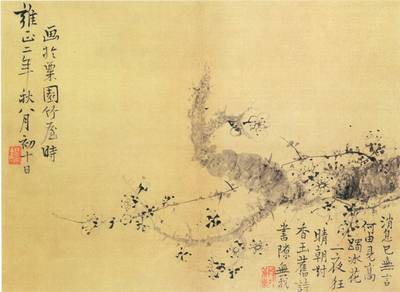 消息已無言
何由見萬
冰花
一夜狂
晴朝對
香玉舊詩
書陳無我
画於粟園竹屋時
雍正二年秋八月初十日